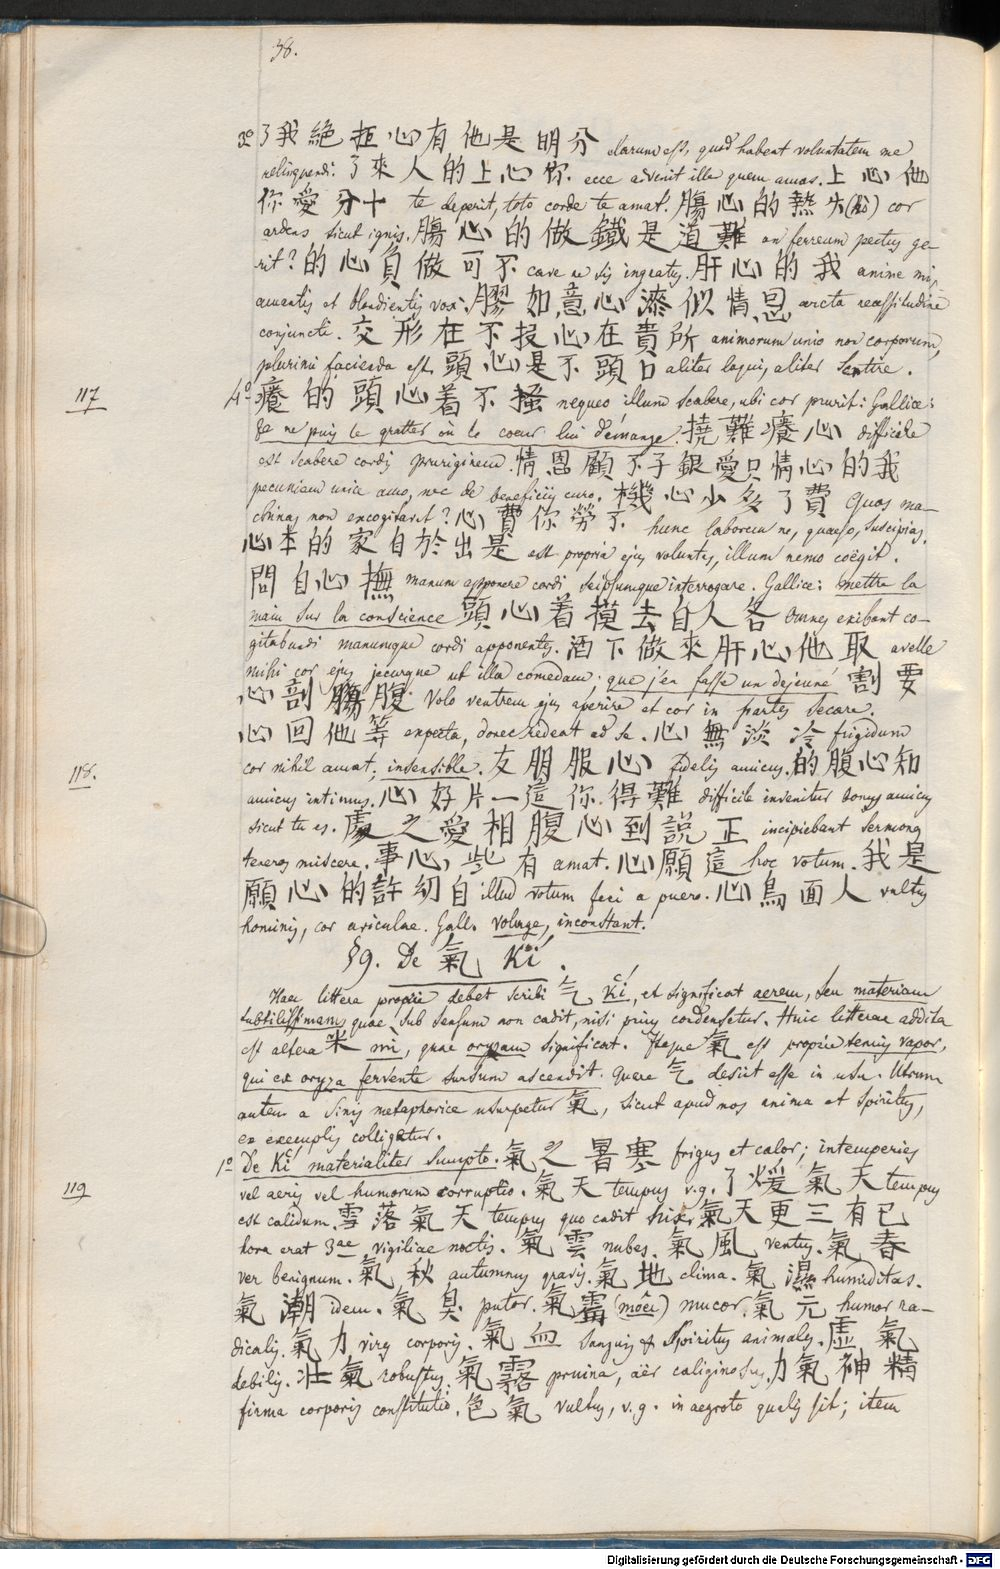 38.
3º 了我絶拒心有他是明分 clarum est, quod habent voluntatem me
relinquendi. 了來人的上心你. ecce advenit ille quem amas. 上心他
你愛分十 te deperit, toto corde te amat. 腸心的熱火(hò) cor
ardens sicut ignis. 腸心的做鐵是道難 an ferreum pectus ge-
rit? 的心負做可不 cave ne sis ingratus. 肝心的我 anime mi,
amantis et blandientis vox. 膠如意心漆似情恩 arcta necessitudine
conjuncti. 交形在不投心在貴所 animorum unio non corporum,
plurimi facienda est. 頭心是不頭口 aliter loqui, aliter sentire.
117
4º 癢的頭心着不搔 nequeo illum scabere, ubi cor prurit: Gallice:
je ne puis le gratter où le coeur lui démange. 撓難癢心 difficile
est scabere cordis pruriginem. 情恩顧不子銀愛只情心的我
pecuniam unice amo, nec de beneficiis curo. 機心少多了費 Quas ma-
chinas non excogitavit? 心費你勞不 hunc laborem ne, quaeso, suscipias.
心本的家自於出是 est propria ejus voluntas, illum nemo coëgit.
問自心撫 manum apponere cordi seipsumque interrogare. Gallice: mettre la
main sur la conscience 頭心着摸去自人各 Omnes exibant co-
gitabundi manumque cordi apponentes. 酒下做來肝心他取 avelle
mihi cor ejus jecurque ut illa comedam. que j'en fasse un dejeuné 割要
心剖腸腹 Volo ventrem ejus aperire et cor in partes secare.
心回他等 expecta, donec redeat ad se. 心無淡冷 frigidum
118.
cor nihil amat, insensible. 友朋服心 fidelis amicus. 的腹心知
amicus intimus. 心好片一這你得難 difficile invenitur bonus amicus
sicut tu es. 處之愛相腹心到說正 incipiebant sermones
teneros miscere. 事心些有 amat. 心願這 hoc votum. 我是
願心的許幼自 illud votum feci a puero. 心鳥面人 vultus
hominis, cor aviculae. Gall. volage, inconstant.
§9. De 氣 Kí.
Haec littera proprie debet scribi 气 Kí, et significat aerem, seu materiam
subtilissimam quae sub sensum non cadit, nisi prius condensetur. Huic litterae addita
est altera 米 mì, quae oryzam significat. Itaque 氣 est proprie tenuis vapor,
qui ex oryza fervente sursum ascendit. Quare 气 desiit esse in usu. Utrum
autem a Sinis metaphorice usurpetur 氣, sicut apud nos anima et spiritus,
ex exemplis colligetur.
1º De Kí materialiter sumpto. 氣之暑寒 frigus et calor; intemperies
119
vel aeris vel humorum corruptio. 氣天 tempus v.g. 了煖氣天 tempus
est calidum. 雪落氣天 tempus quo cadit nix. 氣天更三有已
hora erat 3ae vigiliae noctis. 氣雲 nubes. 氣風 ventus. 氣春
ver benignum. 氣秋 autumnus gravis. 氣地 clima. 氣濕 humiditas.
氣潮 idem. 氣臭 putor. 氣霉 (môei) mucor. 氣元 humor ra-
dicalis. 氣力 vires corporis. 氣血 sanguis & spiritus animales. 虛氣
debilis. 壯氣 robustus. 氣霧 pruina, aër caliginosus. 力氣神精
firma corporis constitutio. 色氣 vultus, v.g. in aegroto qualis sit; item
Digitalisierung gefördert durch die Deutsche Forschungsgemeinschaft - DFG